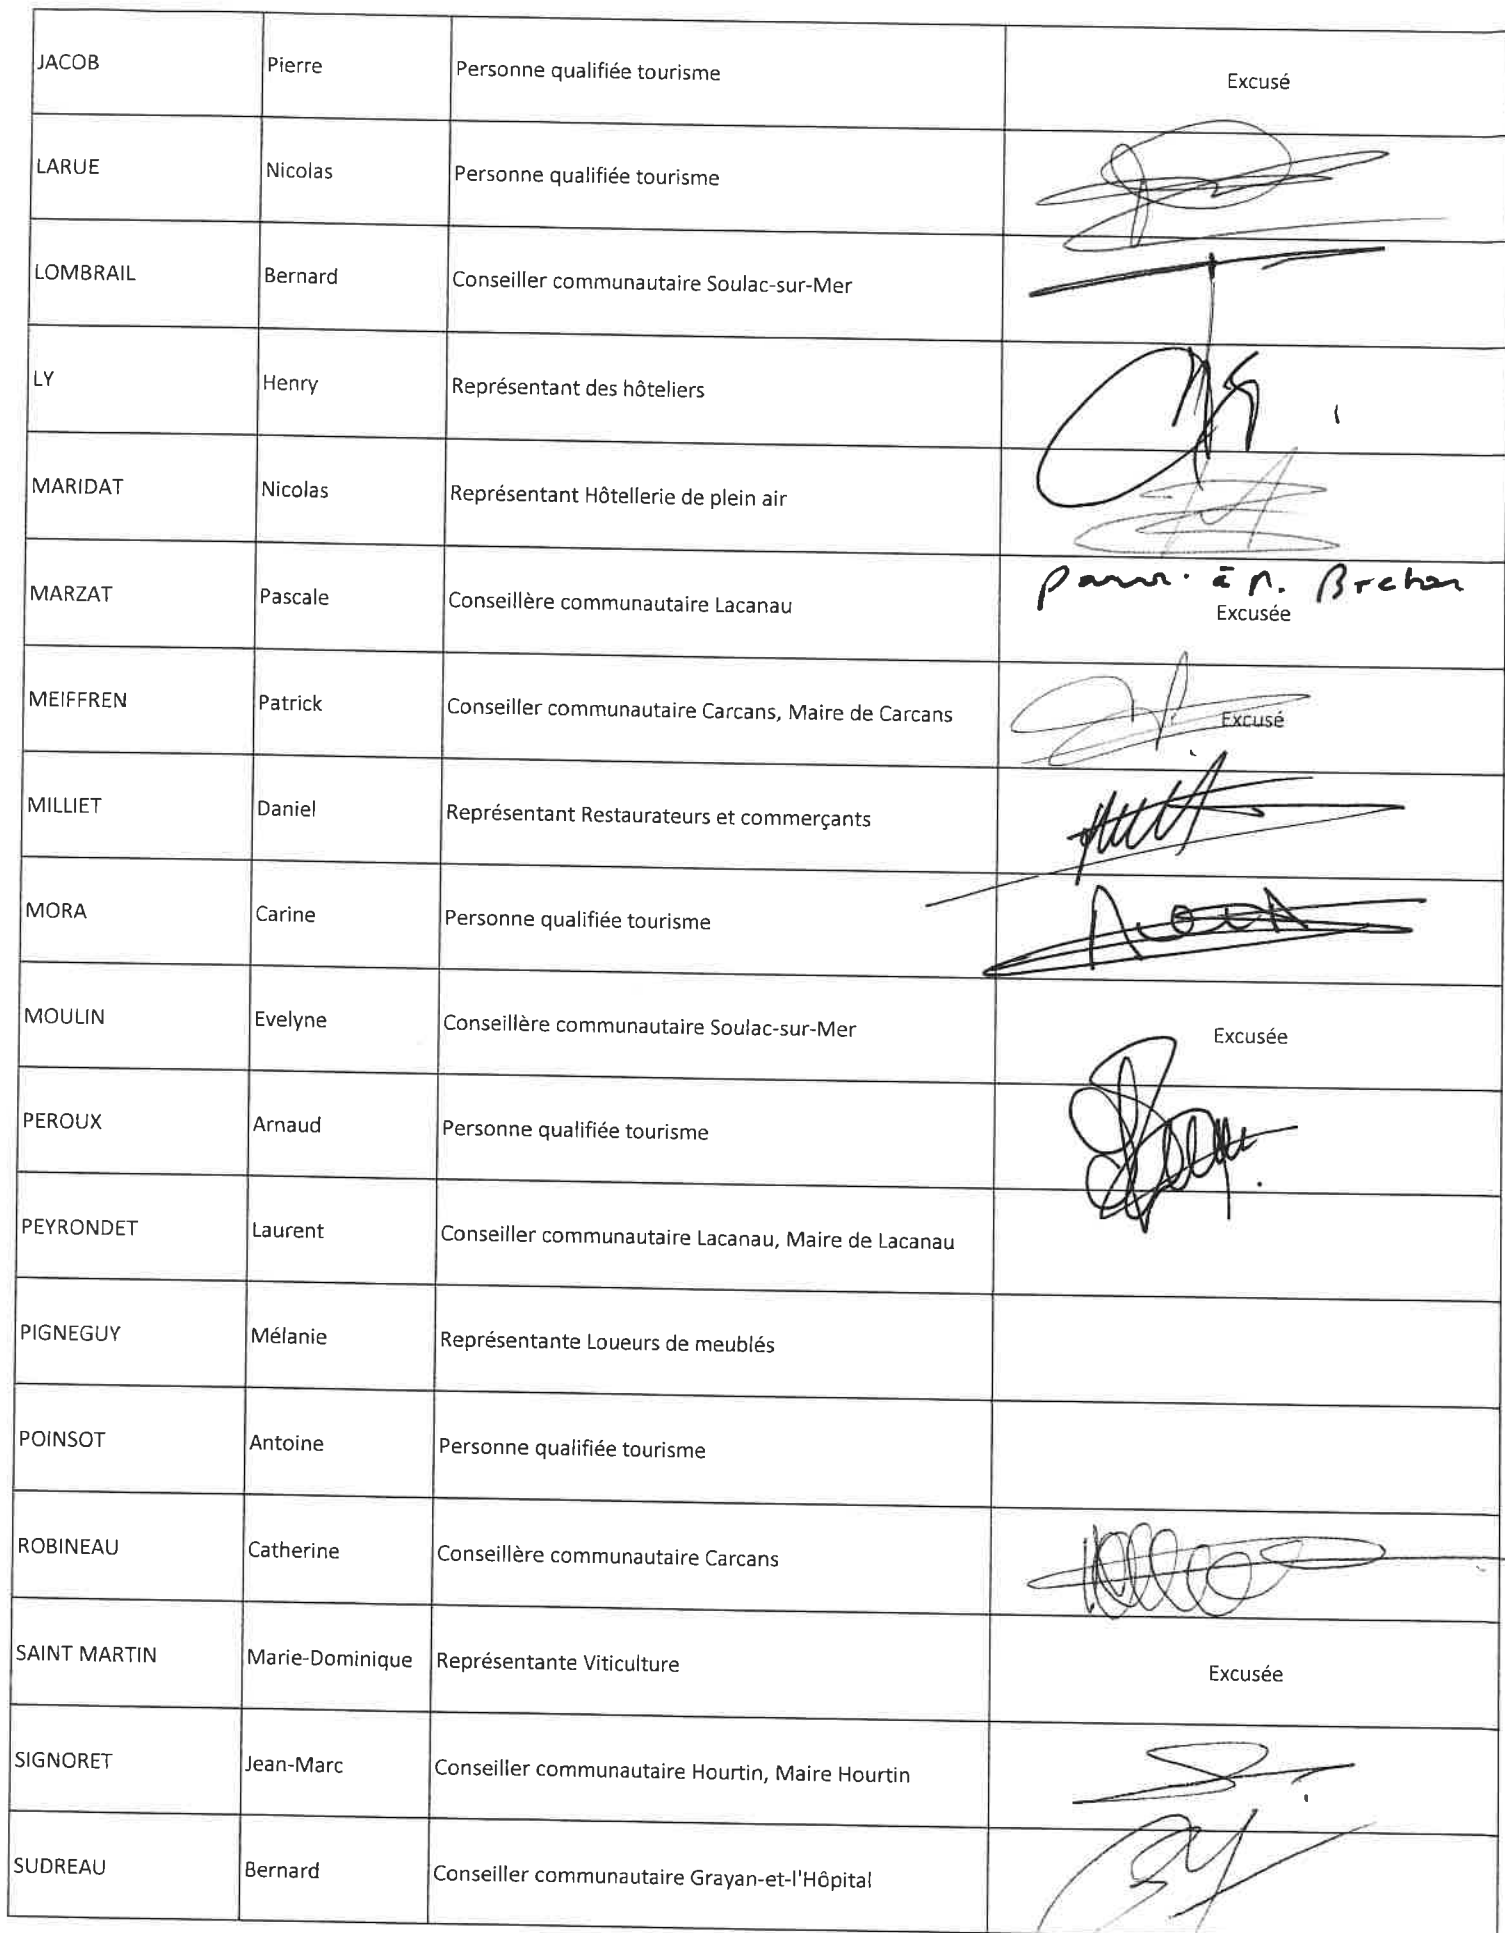 JACOB Pierre Personne qualifiée tourisme Excusé
LARUE Nicolas Personne qualifiée tourisme
LOMBRAIL Bernard Conseiller communautaire Soulac-sur-Mer
LY Henry Représentant des hôteliers
MARIDAT Nicolas Représentant Hôtellerie de plein air
à M. Breton
MARZAT Pascale Conseillère communautaire Lacanau Excusée
MEIFFREN Patrick Conseiller communautaire Carcans, Maire de Carcans Excusé
MILLIET Daniel Représentant Restaurateurs et commerçants
MORA Carine Personne qualifiée tourisme
MOULIN Evelyne Conseillère communautaire Soulac-sur-Mer Excusée
PEROUX Arnaud Personne qualifiée tourisme
PEYRONDET Laurent Conseiller communautaire Lacanau, Maire de Lacanau
PIGNEGUY Mélanie Représentante Loueurs de meublés
POINSOT Antoine Personne qualifiée tourisme
ROBINEAU Catherine Conseillère communautaire Carcans
SAINT MARTIN Marie-Dominique Représentante Viticulture Excusée
SIGNORET Jean-Marc Conseiller communautaire Hourtin, Maire Hourtin
SUDREAU Bernard Conseiller communautaire Grayan-et-l'Hôpital